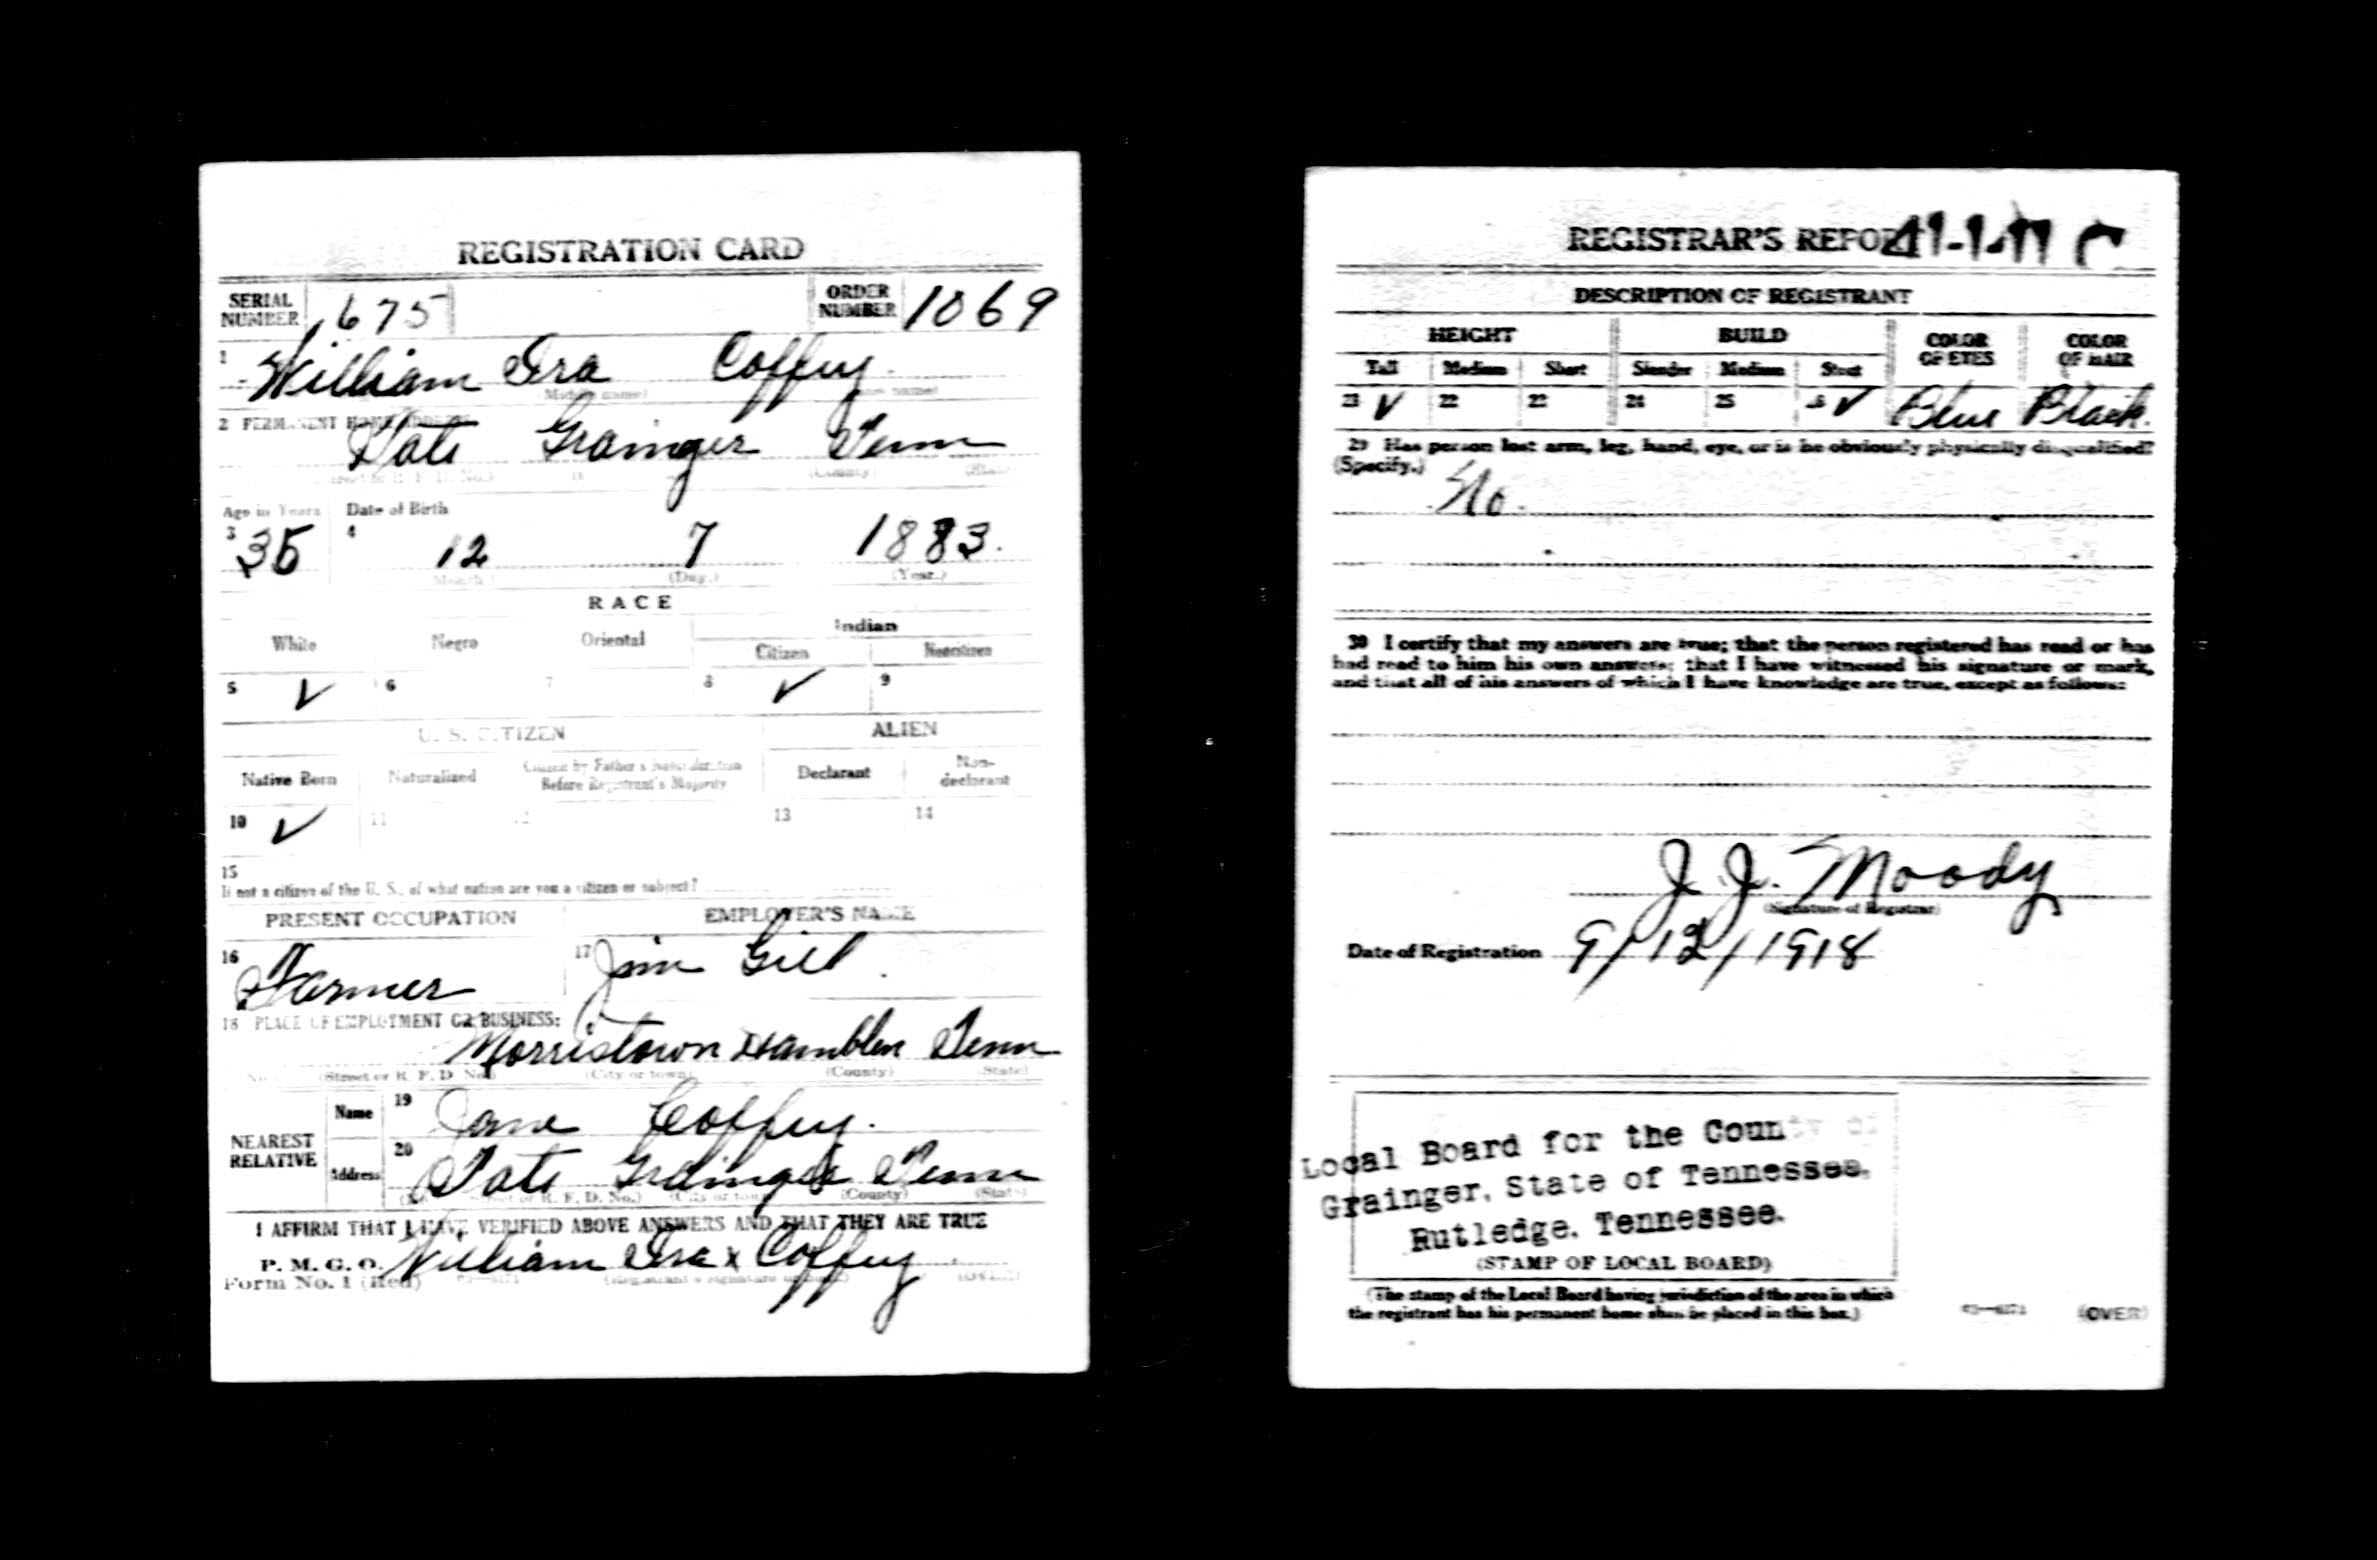 REGISTRATION CARD
SERIAL NUMBER 675 ORDER NUMBER 1069
1 William Ira Coffey
(Middle name)
2 PERMANENT HOME ADDRESS
Tate Grainger Tenn
(County) (State)
Age in Years Date of Birth
3 35 4 12 7 1883.
(Month.) (Day.) (Year.)
RACE
White Negro Oriental Indian
Citizen Noncitizen
5 ✓ 6 7 8 ✓ 9
U. S. CITIZEN ALIEN
Native Born Naturalized Citizen by Father's Naturalization Before Registrant's Majority Declarant Non-declarant
10 ✓ 11 12 13 14
15
If not a citizen of the U. S., of what nation are you a citizen or subject?
PRESENT OCCUPATION EMPLOYER'S NAME
16 Farmer 17 Jim Gill.
18 PLACE OF EMPLOYMENT OR BUSINESS:
Morristown Hamblen Tenn
(Street or R. F. D. No.) (City or town) (County) (State)
NEAREST RELATIVE Name 19 Jane Coffey.
Address 20 Tate Grainger Tenn
(Street or R. F. D. No.) (City or town) (County) (State)
I AFFIRM THAT I HAVE VERIFIED ABOVE ANSWERS AND THAT THEY ARE TRUE
P. M. G. O.
Form No. 1 (Red) William Ira x Coffey
REGISTRAR'S REPORT
DESCRIPTION OF REGISTRANT
HEIGHT BUILD COLOR OF EYES COLOR OF HAIR
Tall Medium Short Slender Medium Stout
✓ 22 24 25 ✓ Blue Black.
29 Has person lost arm, leg, hand, eye, or is he obviously physically disqualified?
(Specify.) No.
30 I certify that my answers are true; that the person registered has read or has
had read to him his own answers; that I have witnessed his signature or mark,
and that all of his answers of which I have knowledge are true, except as follows:
J. J. Moody
(Signature of Registrar)
Date of Registration 9/12/1918
Local Board for the County of
Grainger, State of Tennessee,
Rutledge, Tennessee.
(STAMP OF LOCAL BOARD)
(The stamp of the Local Board having jurisdiction of the area in which
the registrant has his permanent home shall be placed in this box.)
(OVER)